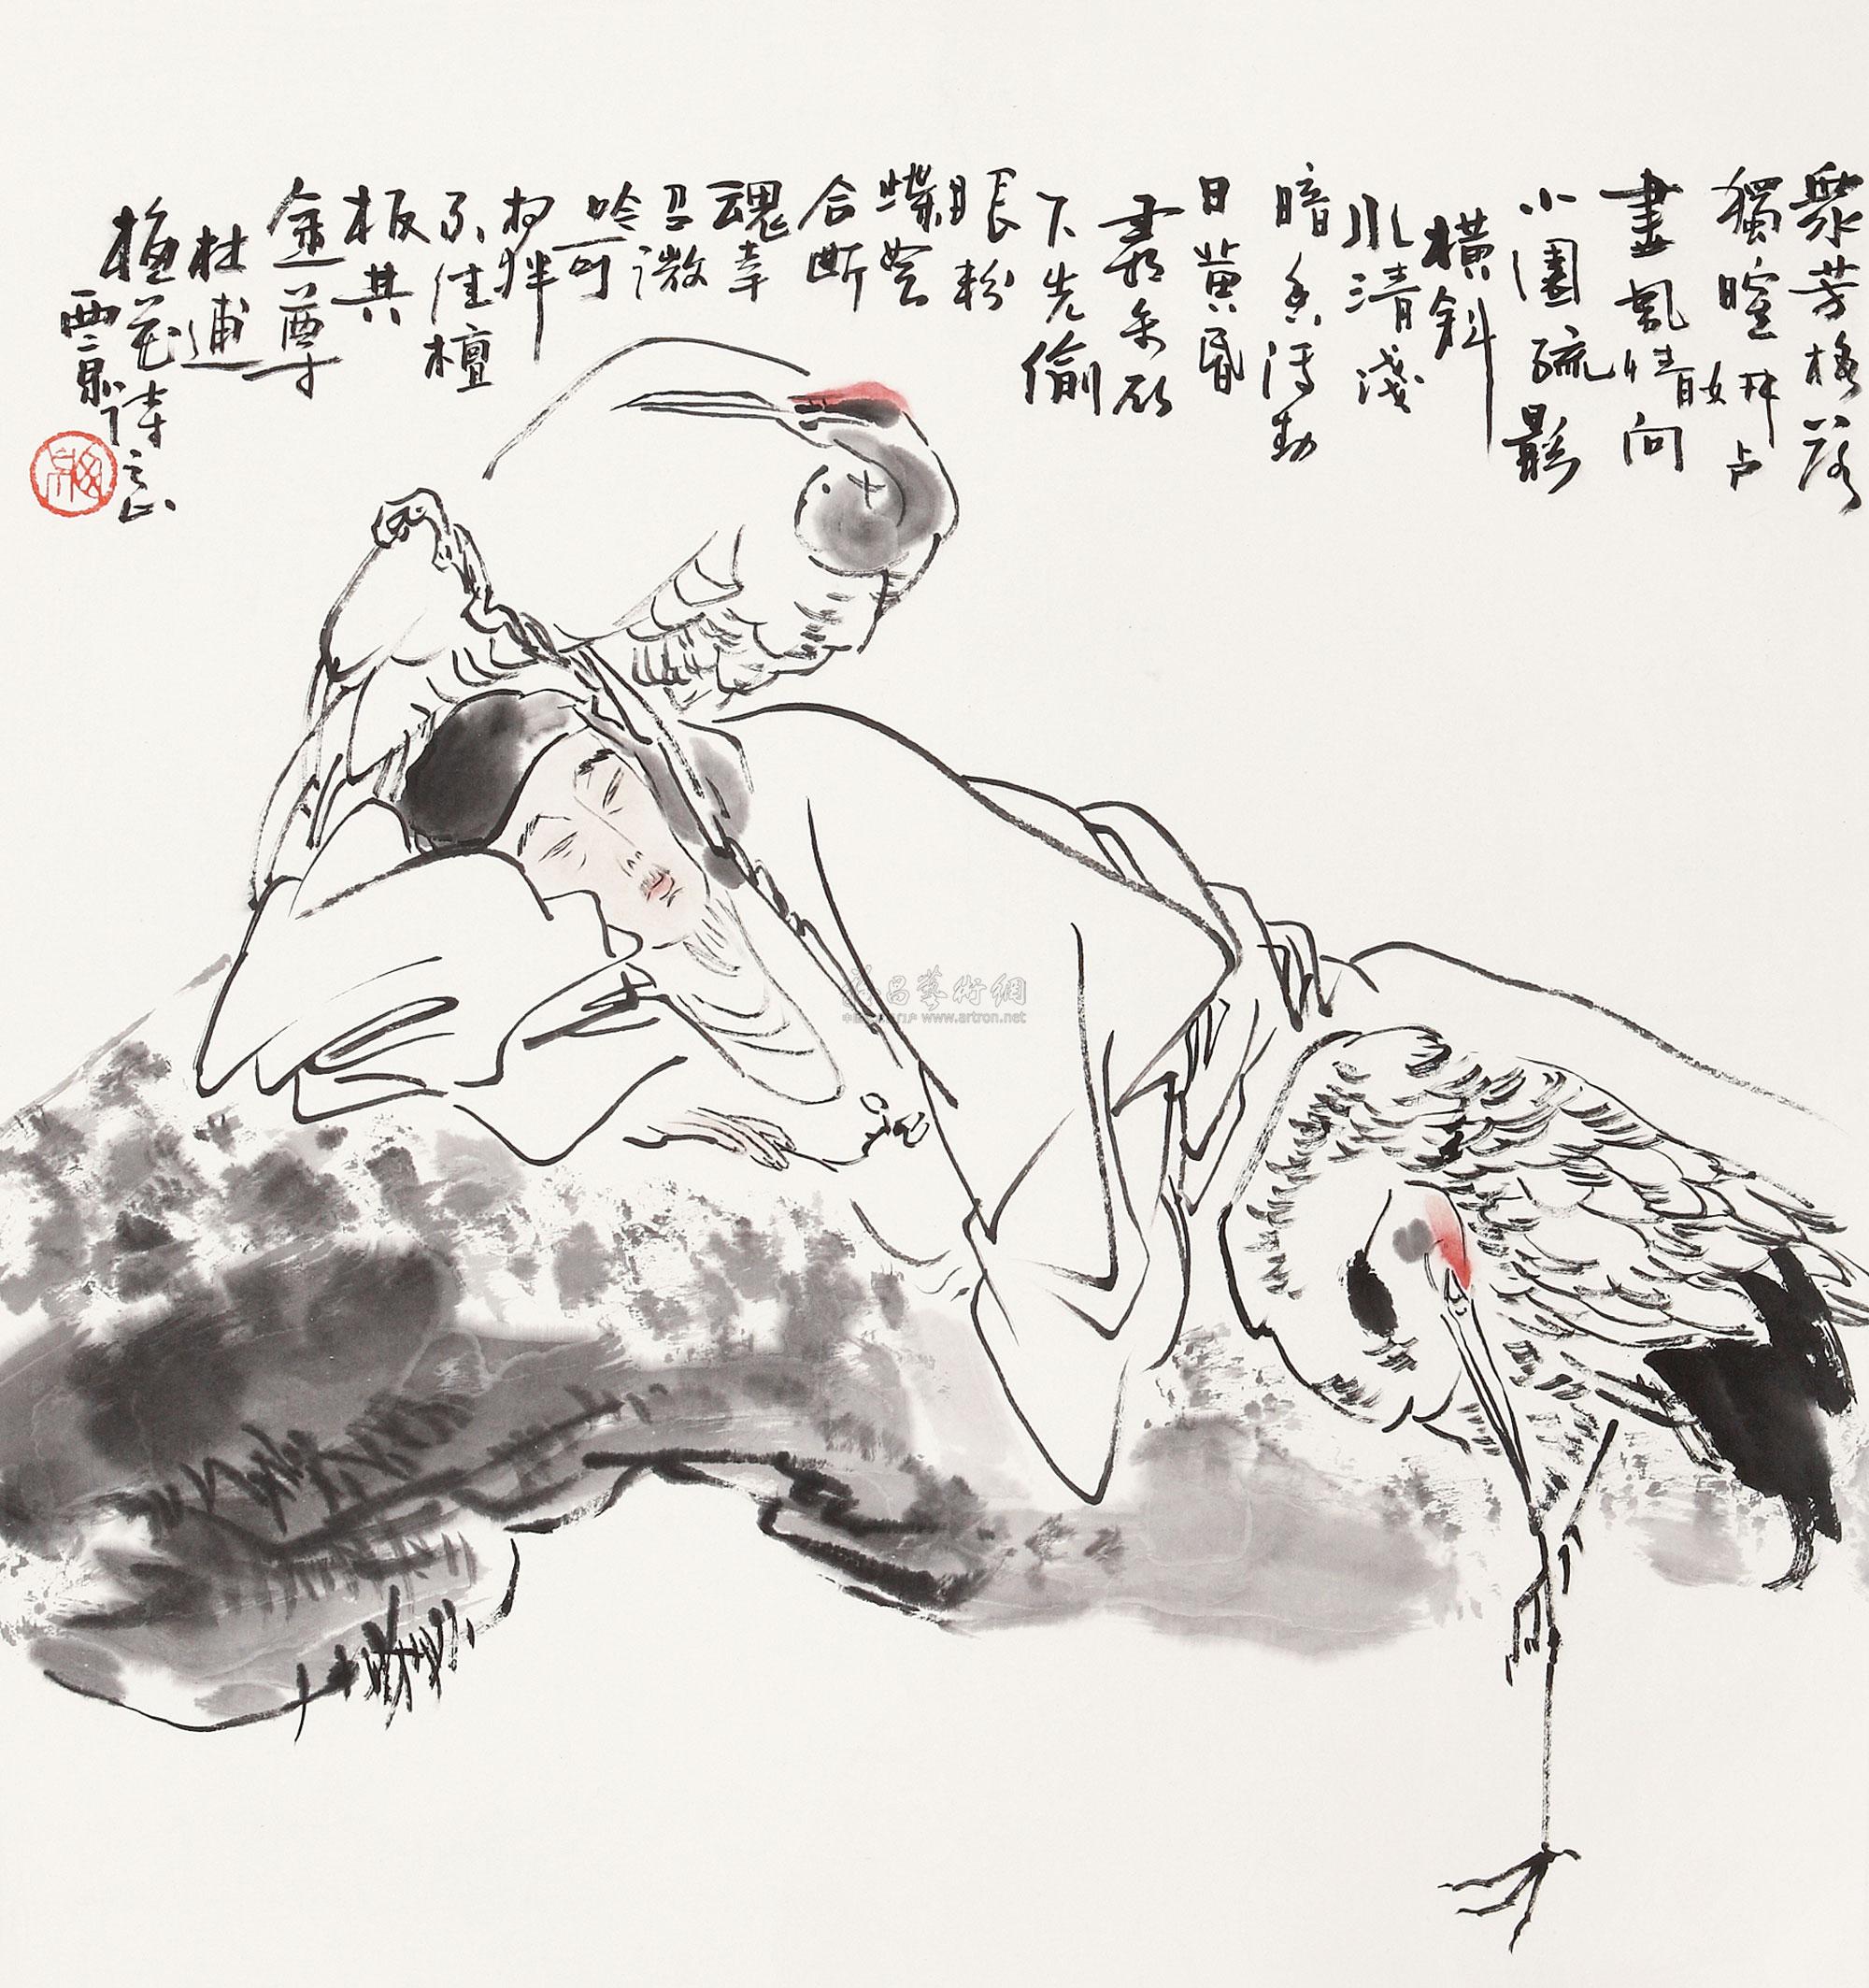 衆芳摇落
獨暄妍占
盡風情向
小園疏影
横斜
水清淺
暗香浮動
月黄昏
霜禽欲
下先偷
眼粉
蝶
合断
魂幸
微
吟可
相狎
不須檀
板共
金尊
林逋
梅花诗意
昌藝術網
www.artron.net